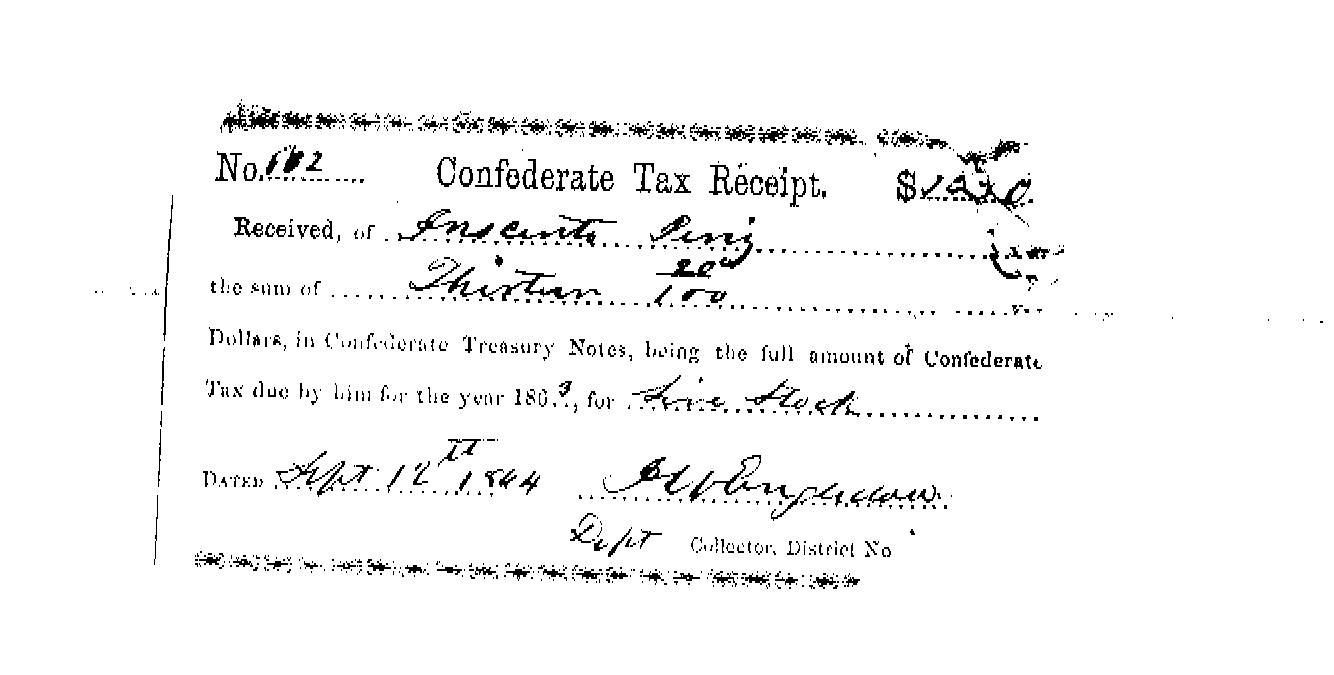 No. 102 Confederate Tax Receipt. $13.20
Received, of Inocente
the sum of Thirteen 20/100
Dollars, in Confederate Treasury Notes, being the full amount of Confederate
Tax due by him for the year 1863, for Live Stock
DATED Sept 12th 1864
Dept Collector, District No